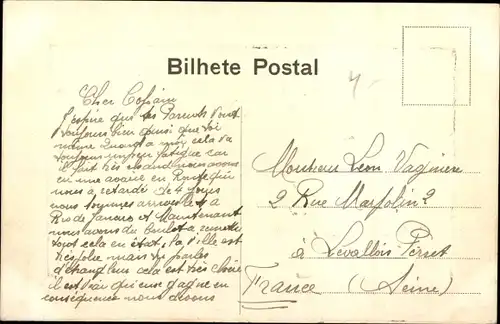 Bilhete Postal
Cher Copain
J'espère que tes Parents vont
toujours bien ainsi que toi
même Quant a moi cela va
toujours un peu fatigué car
il fait très chaud nous avons
eu une avarie en Route qui
nous a retardé de 4 jours
nous sommes arrivés a
Rio de Janeiro et Maintenant
nous avons du boulot a remettre
tout cela en état, la ville est
très jolie mais tu parles
d'étrangleur cela est très cher
il est vrai que
conséquence nous
Monsieur Leon Vaginier
2 Rue Marjolin 2
à Levallois Perret
France (Seine)